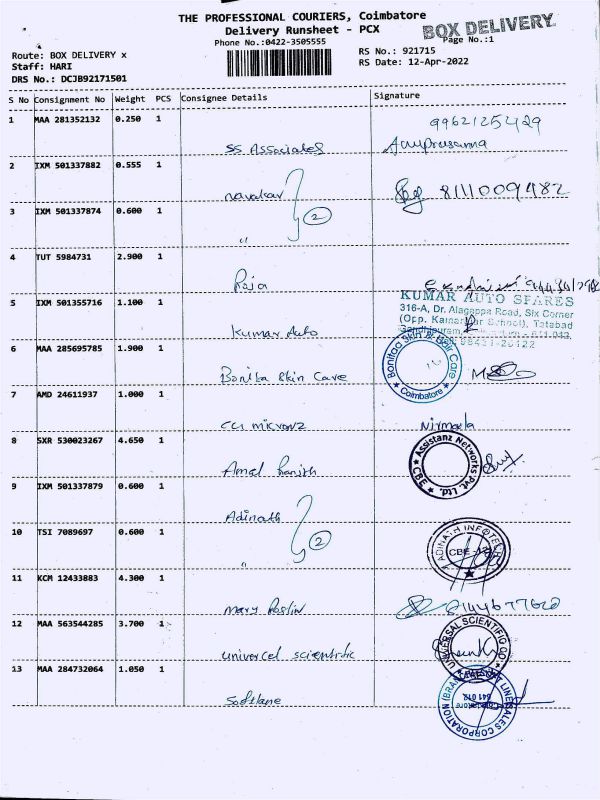 THE PROFESSIONAL COURIERS, Coimbatore
Delivery Runsheet - PCX
BOX DELIVERY
Phone No.:0422-3505555
Page No.:1
Route: BOX DELIVERY x
Staff: HARI
DRS No.: DCJB92171501
RS No.: 921715
RS Date: 12-Apr-2022
S No Consignment No Weight PCS Consignee Details Signature
1 MAA 281352132 0.250 1 SS Associates 9962125429
2 IXM 501337882 0.555 1 navakar 8111009482
3 IXM 501337874 0.600 1 〃 2
4 TUT 5984731 2.900 1 Raja
5 IXM 501355716 1.100 1 Kumar Auto
KUMAR AUTO SPARES
316-A, Dr. Alagappa Road, Six Corner
6 MAA 285695785 1.900 1 Bonita Skin Care
Bonitaa Skin & Hair Care
Coimbatore
7 AMD 24611937 1.000 1 Nirmala
8 SXR 530023267 4.650 1 Amal
Assistanz Networks Pvt. Ltd.
CBE
9 IXM 501337879 0.600 1 Adinath
10 TSI 7089697 0.600 1 〃 2
ADINATH INFOTECH
11 KCM 12433883 4.300 1 mary
12 MAA 563544285 3.700 1 univercel scientific
UNIVERSAL SCIENTIFIC CO
13 MAA 284732064 1.050 1 Softlane